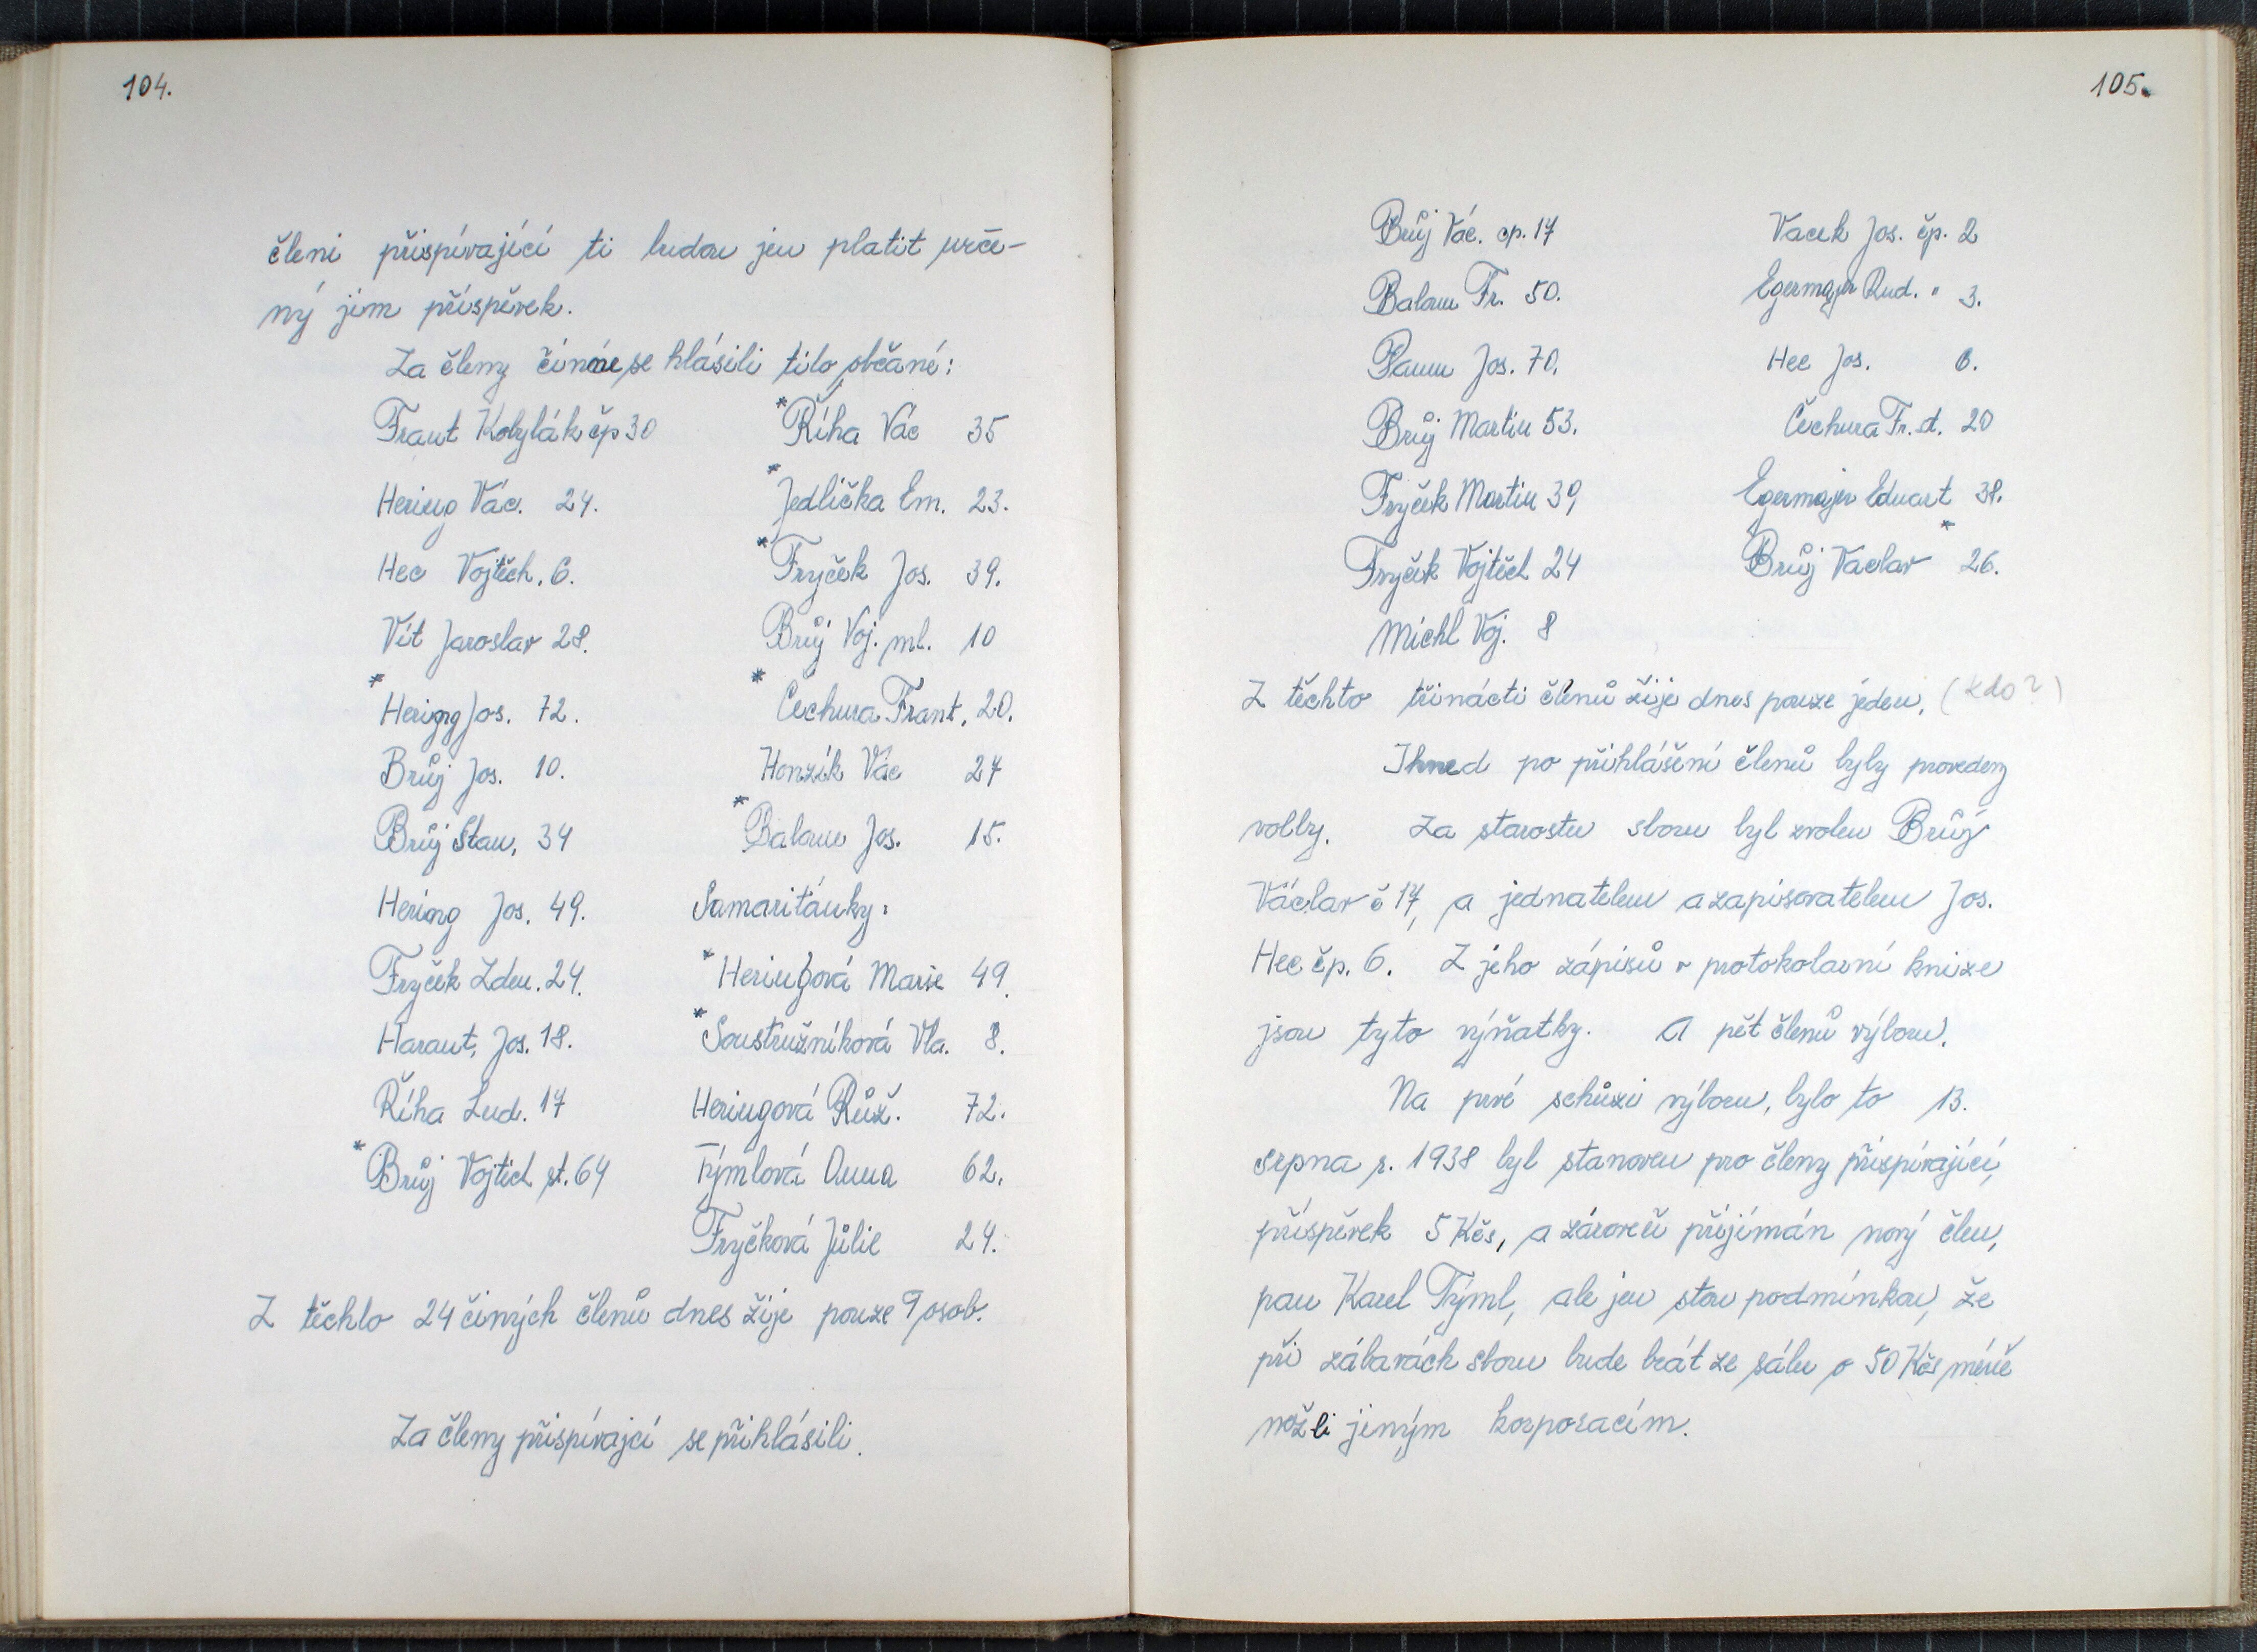 104.
členi přispívající ti budou jen platit urče-
ný jim příspěvek.
Za členy činné se hlásili tito občané:
Frant Kobylák čp 30
Hering Vác. 24.
Hec Vojtěch, 6.
Vít Jaroslav 28.
* Hering Jos. 72.
Brůj Jos. 10.
Brůj Stan, 34
Hering Jos. 49.
Fryček Zden. 24.
Harant, Jos. 18.
Říha Lud. 17
* Brůj Vojtěch st. 64
* Říha Vác 35
* Jedlička Em. 23.
* Fryček Jos. 39.
Brůj Voj. ml. 10
* Čechura Frant, 20.
Honzík Vác 27
* Baloun Jos. 15.
Samaritánky:
* Heringová Marie 49.
* Soustružníková Vla. 8.
Heringová Růž. 72.
Týmlová Anna 62.
Fryčková Júlie 24.
Z těchto 24 činých členů dnes žije pouze 9 osob.
Za členy přispívajcí se přihlásili.
105.
Brůj Vác. čp. 17
Baloun Fr. 50.
Paum Jos. 70.
Brůj Martin 53.
Fryček Martin 39,
Fryček Vojtěch 24
Michl Voj. 8
Vacek Jos. čp. 2
Egermajer Rud. " 3.
Hec Jos. 6.
Čechura Fr. st. 20
Egermajer Eduart 38.
Brůj Vaclav * 26.
Z těchto třinácti členů žije dnes pouze jeden. (kdo?)
Ihned po přihlášení členů byly provedeny
volby. Za starostu sboru byl zvolen Brůj
Václav č 17, a jednatelem a zapisovatelem Jos.
Hec čp. 6. Z jeho zápisů v protokolarní knize
jsou tyto výňatky. A pět členů výboru.
Na prvé schůzi výboru, bylo to 13.
srpna r. 1938 byl stanoven pro členy přispívající,
příspěvek 5 Kčs, a zároveň přijímán nový člen,
pan Karel Týml, ale jen stou podmínkou, že
při zábavách sboru bude brát ze sálu o 50 Kčs méně
nežli jiným korporacím.